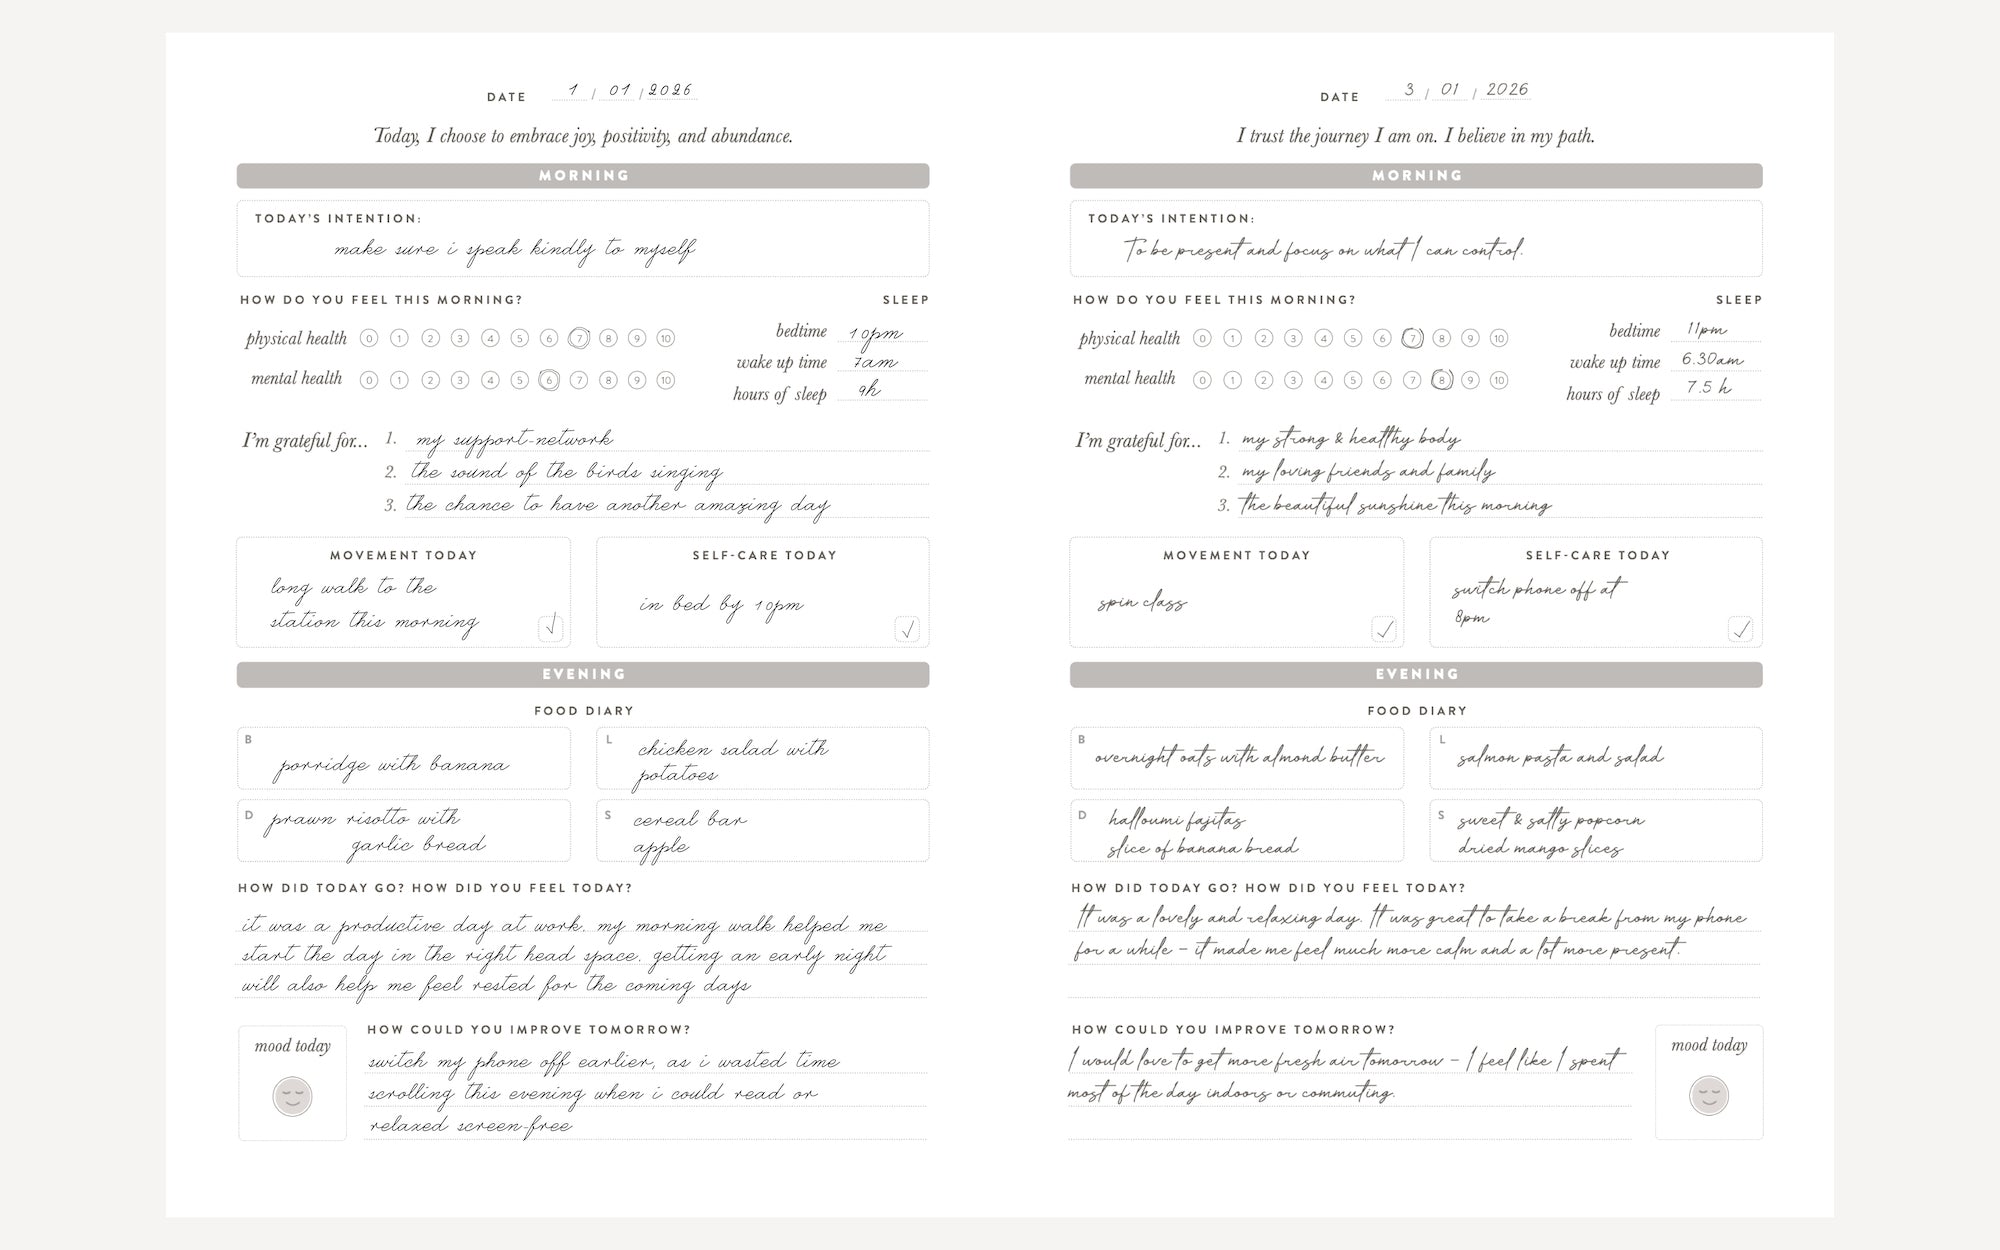 DATE 1 / 01 / 2026
Today, I choose to embrace joy, positivity, and abundance.
MORNING
TODAY'S INTENTION:
make sure i speak kindly to myself
HOW DO YOU FEEL THIS MORNING? SLEEP
physical health 0 1 2 3 4 5 6 7 8 9 10
bedtime 10pm
wake up time 7am
mental health 0 1 2 3 4 5 6 7 8 9 10
hours of sleep 9h
I'm grateful for... 1. my support-network
2. the sound of the birds singing
3. the chance to have another amazing day
MOVEMENT TODAY
long walk to the
station this morning
SELF-CARE TODAY
in bed by 10pm
EVENING
FOOD DIARY
B porridge with banana
L chicken salad with
potatoes
D prawn risotto with
garlic bread
S cereal bar
apple
HOW DID TODAY GO? HOW DID YOU FEEL TODAY?
it was a productive day at work. my morning walk helped me
start the day in the right head space. getting an early night
will also help me feel rested for the coming days
mood today
HOW COULD YOU IMPROVE TOMORROW?
switch my phone off earlier, as i wasted time
scrolling this evening when i could read or
relaxed screen-free
DATE 3 / 01 / 2026
I trust the journey I am on. I believe in my path.
MORNING
TODAY'S INTENTION:
To be present and focus on what I can control.
HOW DO YOU FEEL THIS MORNING? SLEEP
physical health 0 1 2 3 4 5 6 7 8 9 10
bedtime 11pm
wake up time 6.30am
mental health 0 1 2 3 4 5 6 7 8 9 10
hours of sleep 7.5 h
I'm grateful for... 1. my strong & healthy body
2. my loving friends and family
3. the beautiful sunshine this morning
MOVEMENT TODAY
spin class
SELF-CARE TODAY
switch phone off at
8pm
EVENING
FOOD DIARY
B overnight oats with almond butter
L salmon pasta and salad
D halloumi fajitas
slice of banana bread
S sweet & salty popcorn
dried mango slices
HOW DID TODAY GO? HOW DID YOU FEEL TODAY?
It was a lovely and relaxing day. It was great to take a break from my phone
for a while - it made me feel much more calm and a lot more present.
HOW COULD YOU IMPROVE TOMORROW?
I would love to get more fresh air tomorrow - I feel like I spent
most of the day indoors or commuting.
mood today